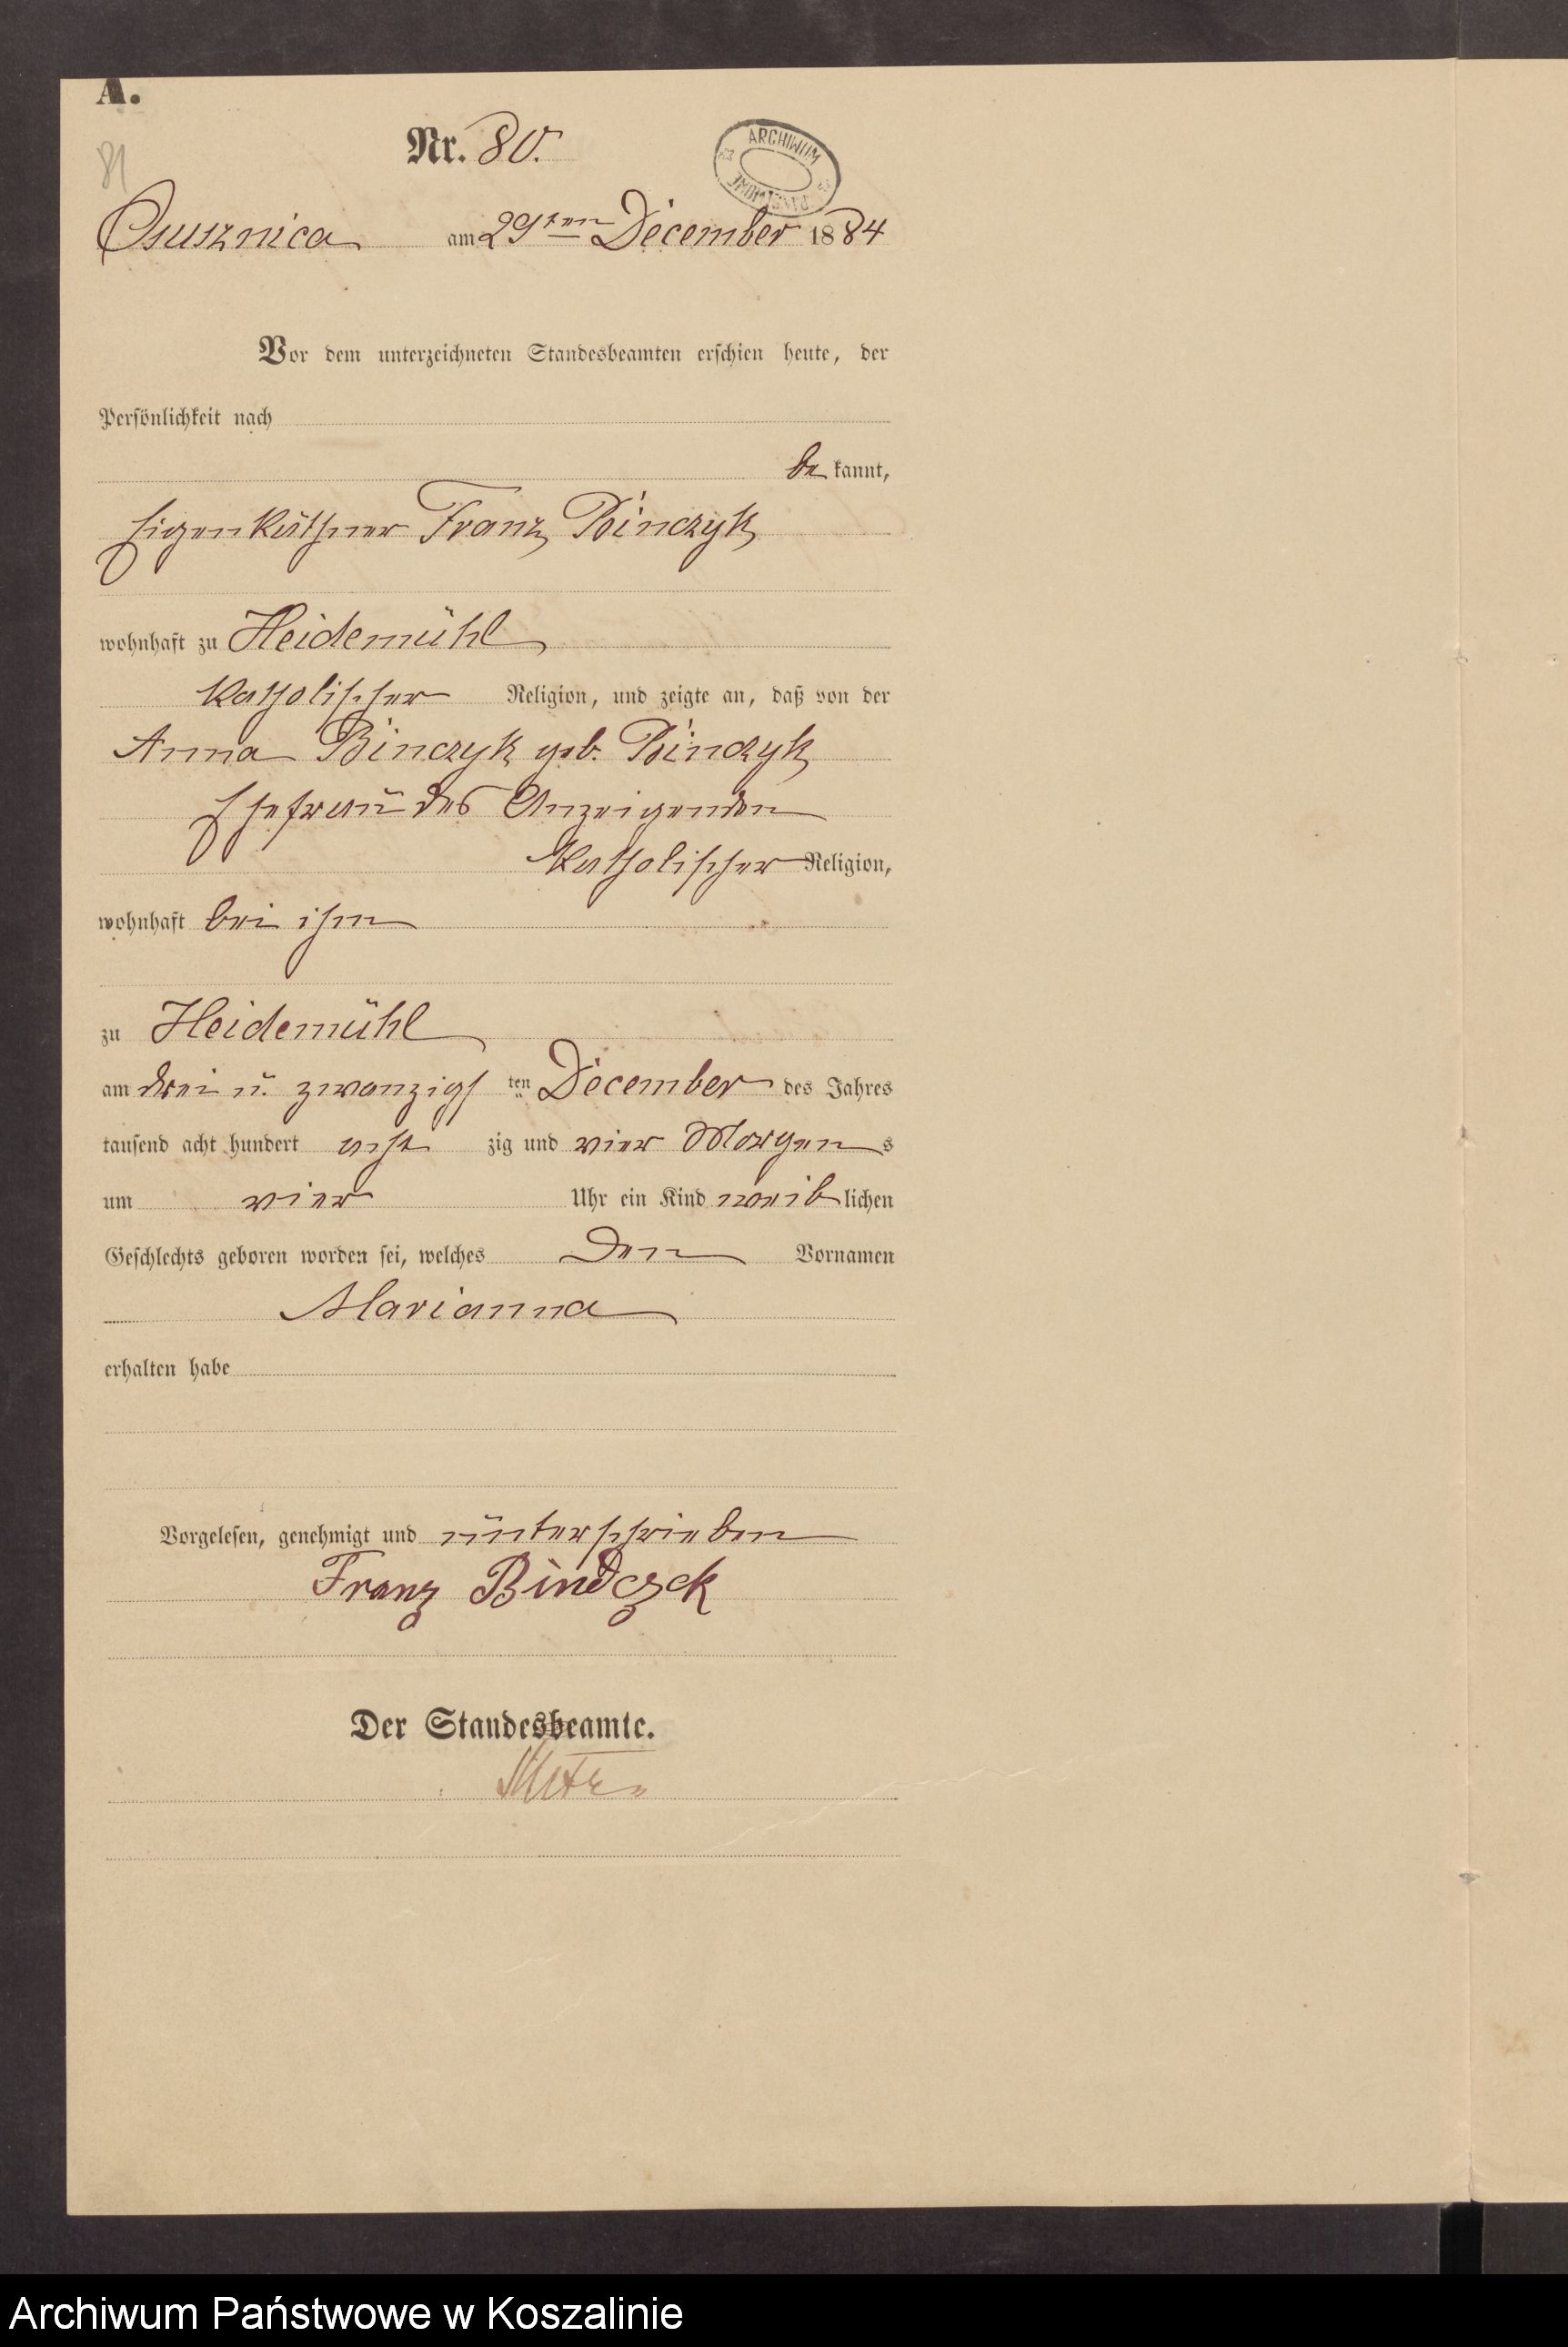 A.
81
Nr. 80.
ARCHIWUM
PAŃSTWOWE
Osusznica am 29ten December 1884
Vor dem unterzeichneten Standesbeamten erschien heute, der
Persönlichkeit nach
be kannt,
Eigenkäthner Franz Binczyk
wohnhaft zu Heidemühl
katholischer Religion, und zeigte an, daß von der
Anna Binczyk geb. Binczyk
Ehefrau des Anzeigenden
katholischer Religion,
wohnhaft bei ihm
zu Heidemühl
am drei u. zwanzigs ten December des Jahres
tausend acht hundert acht zig und vier Morgens
um vier Uhr ein Kind weiblichen
Geschlechts geboren worden sei, welches den Vornamen
Marianna
erhalten habe
Vorgelesen, genehmigt und unterschrieben
Franz Bindczek
Der Standesbeamte.
Archiwum Państwowe w Koszalinie